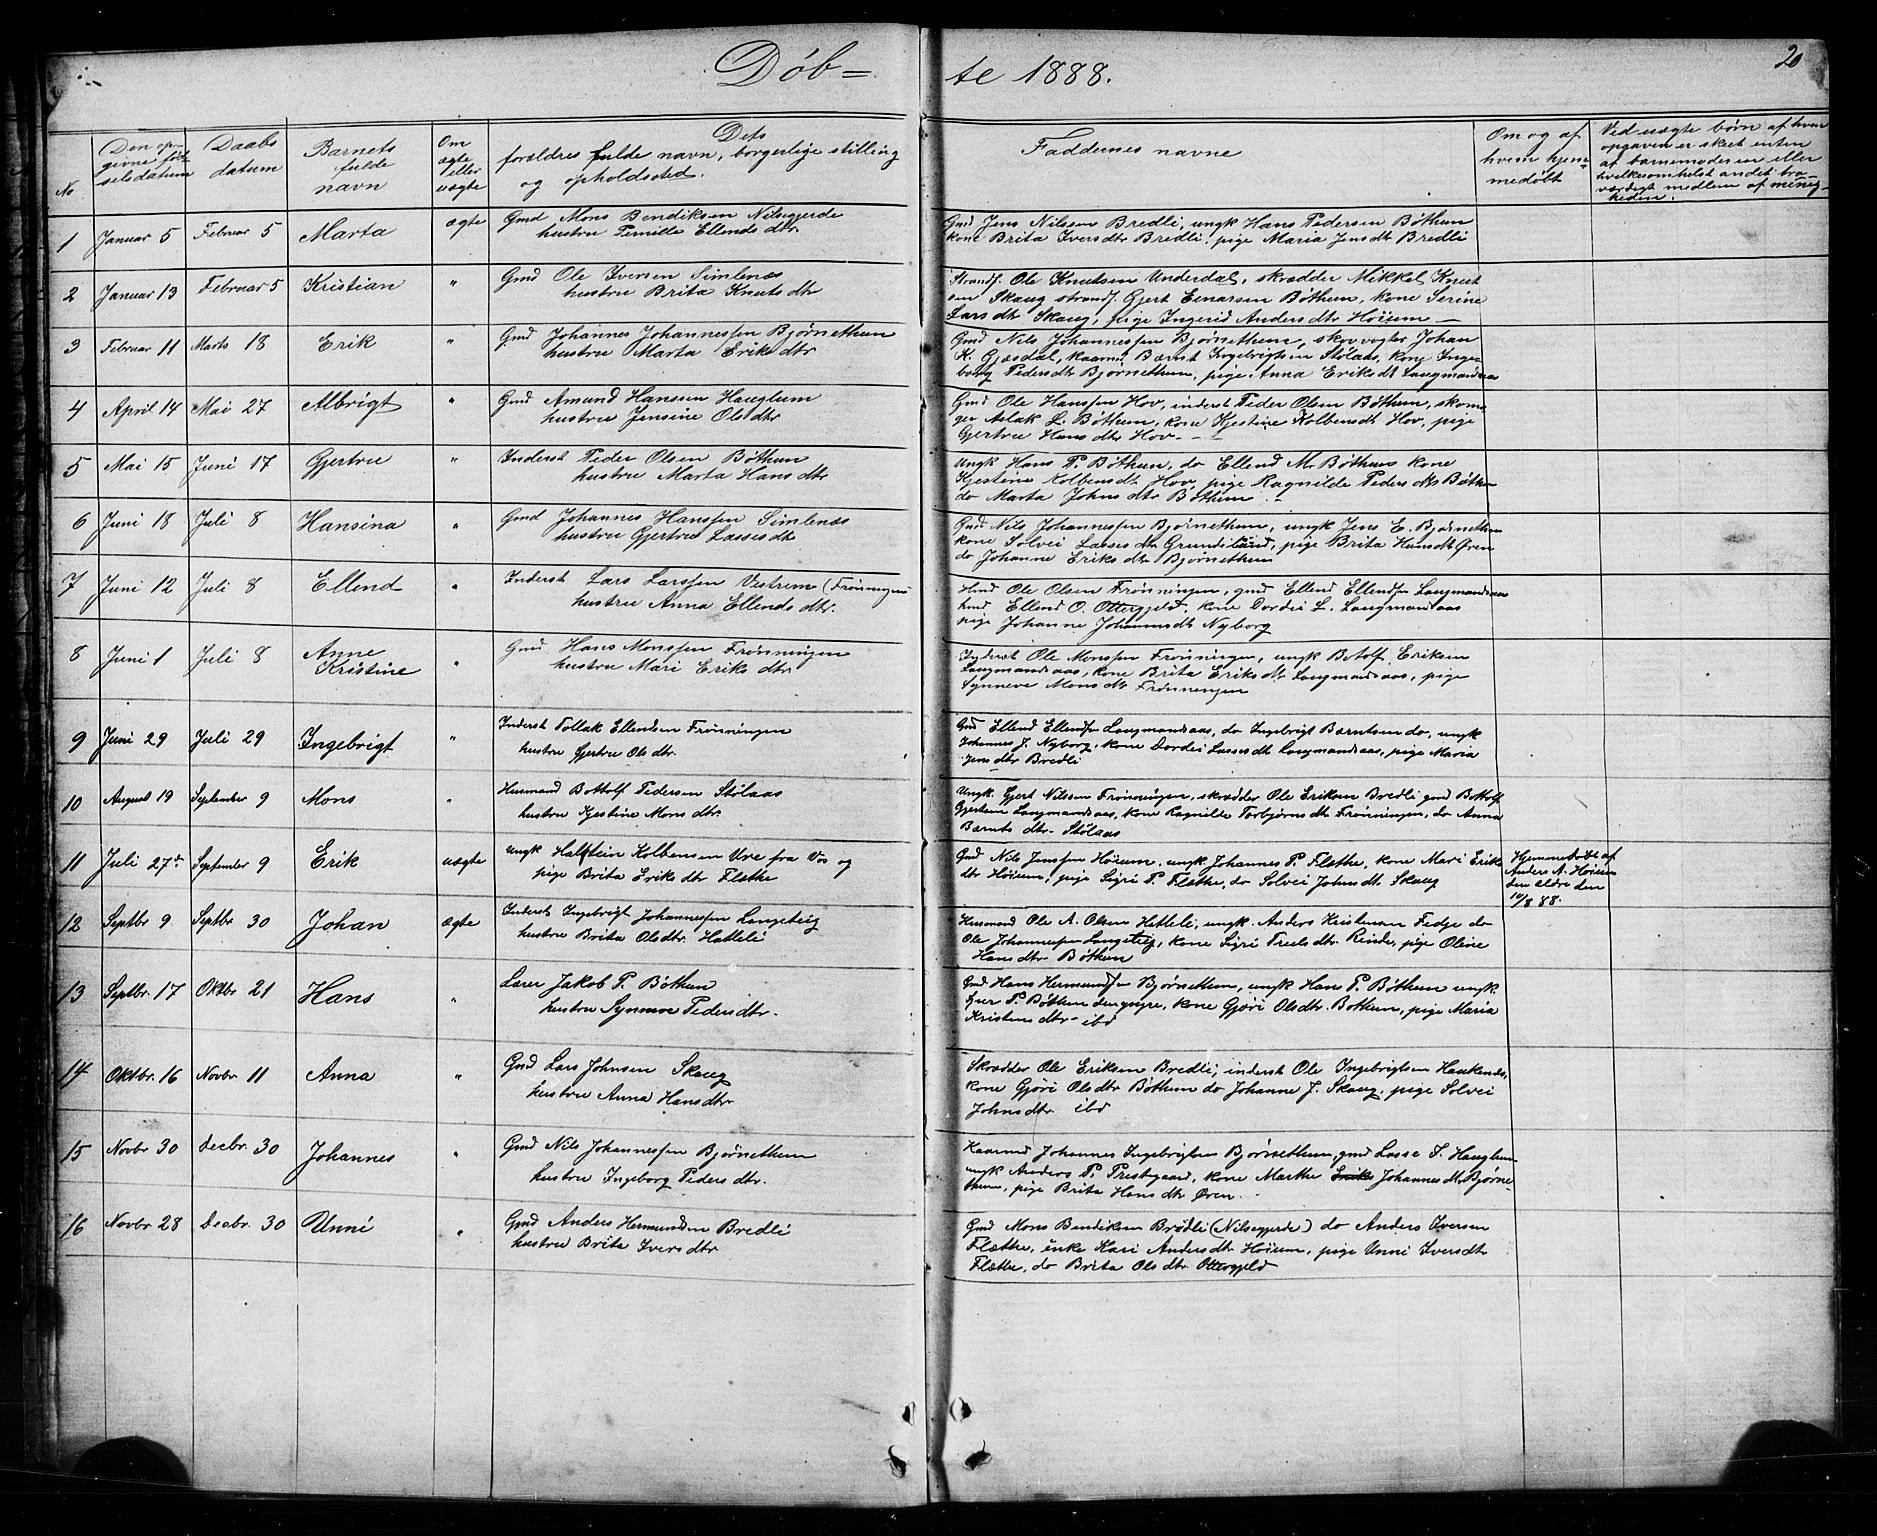 Døb=te 1888.
20
No
Den opgivne fødselsdatum
Daabsdatum
Barnets fulde navn
Om ægte eller uægte
Dets forældres fulde navn, borgerlige stilling og opholdsted.
Faddernes navne
Om og af hvem hjemmedøbt
Ved uægte børn af hvem opgaven er skeet enten af barnemoderen eller hvilkesomhelst andet troværdigt medlem af menigheden.
1 Januar 5 Februar 5 Marta ægte Gmd Mons Bendiksen Nilsegjerde
hustru Pernille Ellends dtr
Gmd Jens Nilssen Bredli, ungk Hans Pedersen Bøthun
kone Brita Iversdtr Bredli, pige Maria Jensdt Bredli
2 Januar 13 Februar 5 Kristian " Gmd Ole Iversen Simlenæs
hustru Brita Knuts dtr
Strands. Ole Knutsen Underdal, skrædder Mikkel Knut
sen Skaug strands. Gjert Einarsen Bøthun, kone Serine
Lars dtr Skaug, pige Ingerid Anders dtr Høium —
3 Februar 11 Marts 18 Erik " Gmd Johannes Johannessen Bjørnethun
hustru Marta Eriks dtr
Gmd Nils Johannessen Bjørnethun, skovvogter Johan
K. Gjæsdal, kaarmd Bærnt Ingebrigtsen Stølaas, kone Inge-
borg Peders dtr Bjørnethun, pige Anna Eriks dt Langmandsaas
4 April 14 Mai 27 Albrigt " Gmd Amund Hanssen Hauglum
hustru Jensine Ols dtr
Gmd Ole Hanssen Hov, inderst Peder Olsen Bøthun, skoma
ger Aslak L. Bøthun, kone Kjestine Kolbensdt Hov, pige
Gjertru Hans dtr Hov - -
5 Mai 15 Juni 17 Gjertru " Inderst Peder Olsen Bøthun
hustru Marta Hans dtr
Ungk Hans P. Bøthun, do Ellend M. Bøthun kone
Kjestine Kolbensdt Hov, pige Ragnilde Peders dtr Bøthun
do Marta Johns dtr Bøthun -
6 Juni 18 Juli 8 Hansina " Gmd Johannes Hanssen Simlenæs
hustru Gjertru Lasses dt
Gmd Nils Johannessen Bjørnethun, ungk Jens E. Bjørnethun
kone Solvei Lasses dtr Grundeland, pige Brita Hansdtr Øren
do Johanne Eriks dtr Bjørnethun
7 Juni 12 Juli 8 Ellend " Inderst Lars Larssen Vestrem (Frønningen
hustru Anna Ellends dtr.
Hmd Ole Olsen Frønningen, gmd Ellend Ellendsen Langmandsaas
hmd Ellend O. Ottergjeld, kone Dordei L. Langmandsaas
pige Johanne Johannesdt Nyborg
8 Juni 1 Juli 8 Anne
Kristine " Gmd Hans Monssen Frønningen
hustru Mari Eriks dtr
Inderst Ole Monssen Frønningen, ungk Botolf Eriksen
Langmandsaas, kone Brita Eriks dtr Langmandsaas, pige
Synneve Mons dtr Frønningen
9 Juni 29 Juli 29 Ingebrigt " Inderst Tollak Ellendsen Frønningen
hustru Gjertru Ols dtr.
Gmd Ellend Ellendsen Langmandsaas, do Ingebrigt Bærntsen do, ungk
Johannes J. Nyborg, kone Dordei Lasses dt Langmandsaas, pige Maria
Jens dtr Bredli
10 August 19 September 9 Mons " Husmand Bottolf Pedersen Stølaas
hustru Kjestine Mons dtr.
Ungk. Gjert Nilssen Frønningen, skrædder Ole Eriksen Bredli gmd Bottolf
Gjertsen Langmandsaas, kone Ragnilde Torbjørns dtr Frønningen, do Anna
Bærnts dtr. Stølaas
11 Juli 27de September 9 Erik uægte ungk Halstein Kolbensen Ure fra Vos og
pige Brita Eriks dtr Flæthe
Gmd Nils Jenssen Høium, ungk Johannes P. Flæthe, kone Mari Eriks
dtr Høium, pige Sigri P. Flæthe, do Solvei Johns dtr Skaug
Hjemmedøbt af
Anders A. Høium
den ældre den
10/8 88.
12 Septbr 9 Septbr 30 Johan ægte Inderst Ingebrigt Johannessen Langeteig
hustru Brita Olsdtr. Hatteli
Husmand Ole A. Olsen Hetleli, ungk. Anders Kristensen Fedje do
Ole Johannessen Langeteig, kone Sigri Truls dtr. Rinde, pige Oline
Hans dtr Bøthun
13 Septbr. 17 Oktbr 21 Hans " Lærer Jakob P. Bøthun
hustru Synneve Peders dtr.
Gmd Hans Hermundsen Bjørnethun, ungk Hans P. Bøthun ungk.
Iver P. Bøthun den yngre, kone Gjøri Olsdtr. Bøthun, pige Maria
Kristens dtr ibd
14 Oktbr. 16 Novbr. 11 Anna " Gmd Lars Johnsen Skaug
hustru Anna Hans dtr
Skrædder Ole Eriksen Bredli, inderst Ole Ingebrigtsen Haukenæs,
kone Gjøri Ols dtr Bøthun do Johanne J. Skaug, pige Solvei
Johns dtr. ibd
15 Novbr 30 Decbr. 30 Johannes " Gmd Nils Johannessen Bjørnethun
hustru Ingeborg Peders dtr.
Kaarmd Johannes Ingebrigtsen Bjørnethun, gmd Lasse I. Hauglum
ungk Anders P. Prestegaard, kone Marthe Eriks Johannes dt Bjørne-
thun, pige Brita Hans dtr Øren.
16 Novbr 28 Decbr. 30 Unni " Gmd Anders Hermundsen Bredli
hustru Brita Ivers dtr
Gmd Mons Bendiksen Brødli (Nilsegjerde) do Anders Iversen
Flæthe, enke Kari Anders dtr Høium, pige Unni Ivers dtr
Flæthe, do Brita Ols dtr Ottergjeld